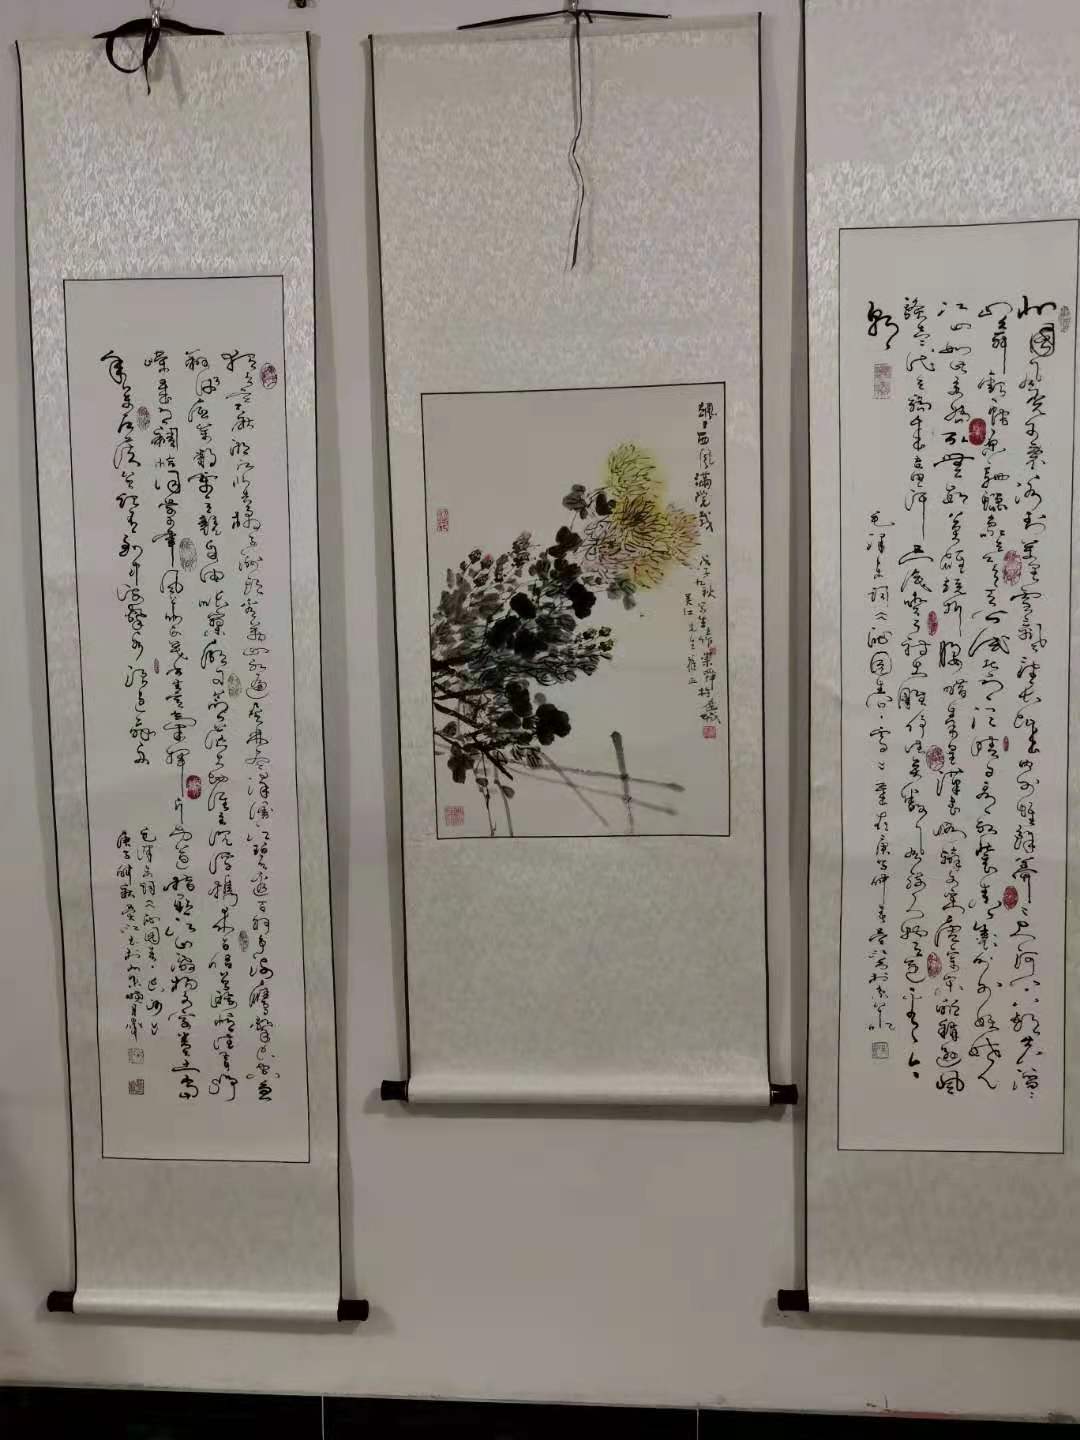 北国风光千里冰封万里雪飘望长城内外惟余莽莽大河上下顿失滔滔
山舞银蛇原驰蜡象欲与天公试比高须晴日看红装素裹分外妖娆
江山如此多娇引无数英雄竞折腰惜秦皇汉武略输文采唐宗宋祖稍逊风
骚一代天骄成吉思汗只识弯弓射大雕俱往矣数风流人物还看今
朝
毛泽东词《沁园春·雪》庚子
飒飒西风满院栽
戊子九秋写生
独立寒秋湘江北去橘子洲头看万山红遍层林尽染漫江碧透百舸争流鹰击长空鱼
翔浅底万类霜天竞自由怅寥廓问苍茫大地谁主沉浮携来百侣曾游忆往昔峥
嵘岁月稠恰同学少年风华正茂书生意气挥斥方遒指点江山激扬文字粪土当
年万户侯曾记否到中流击水浪遏飞舟
毛泽东词《沁园春·长沙》
庚子